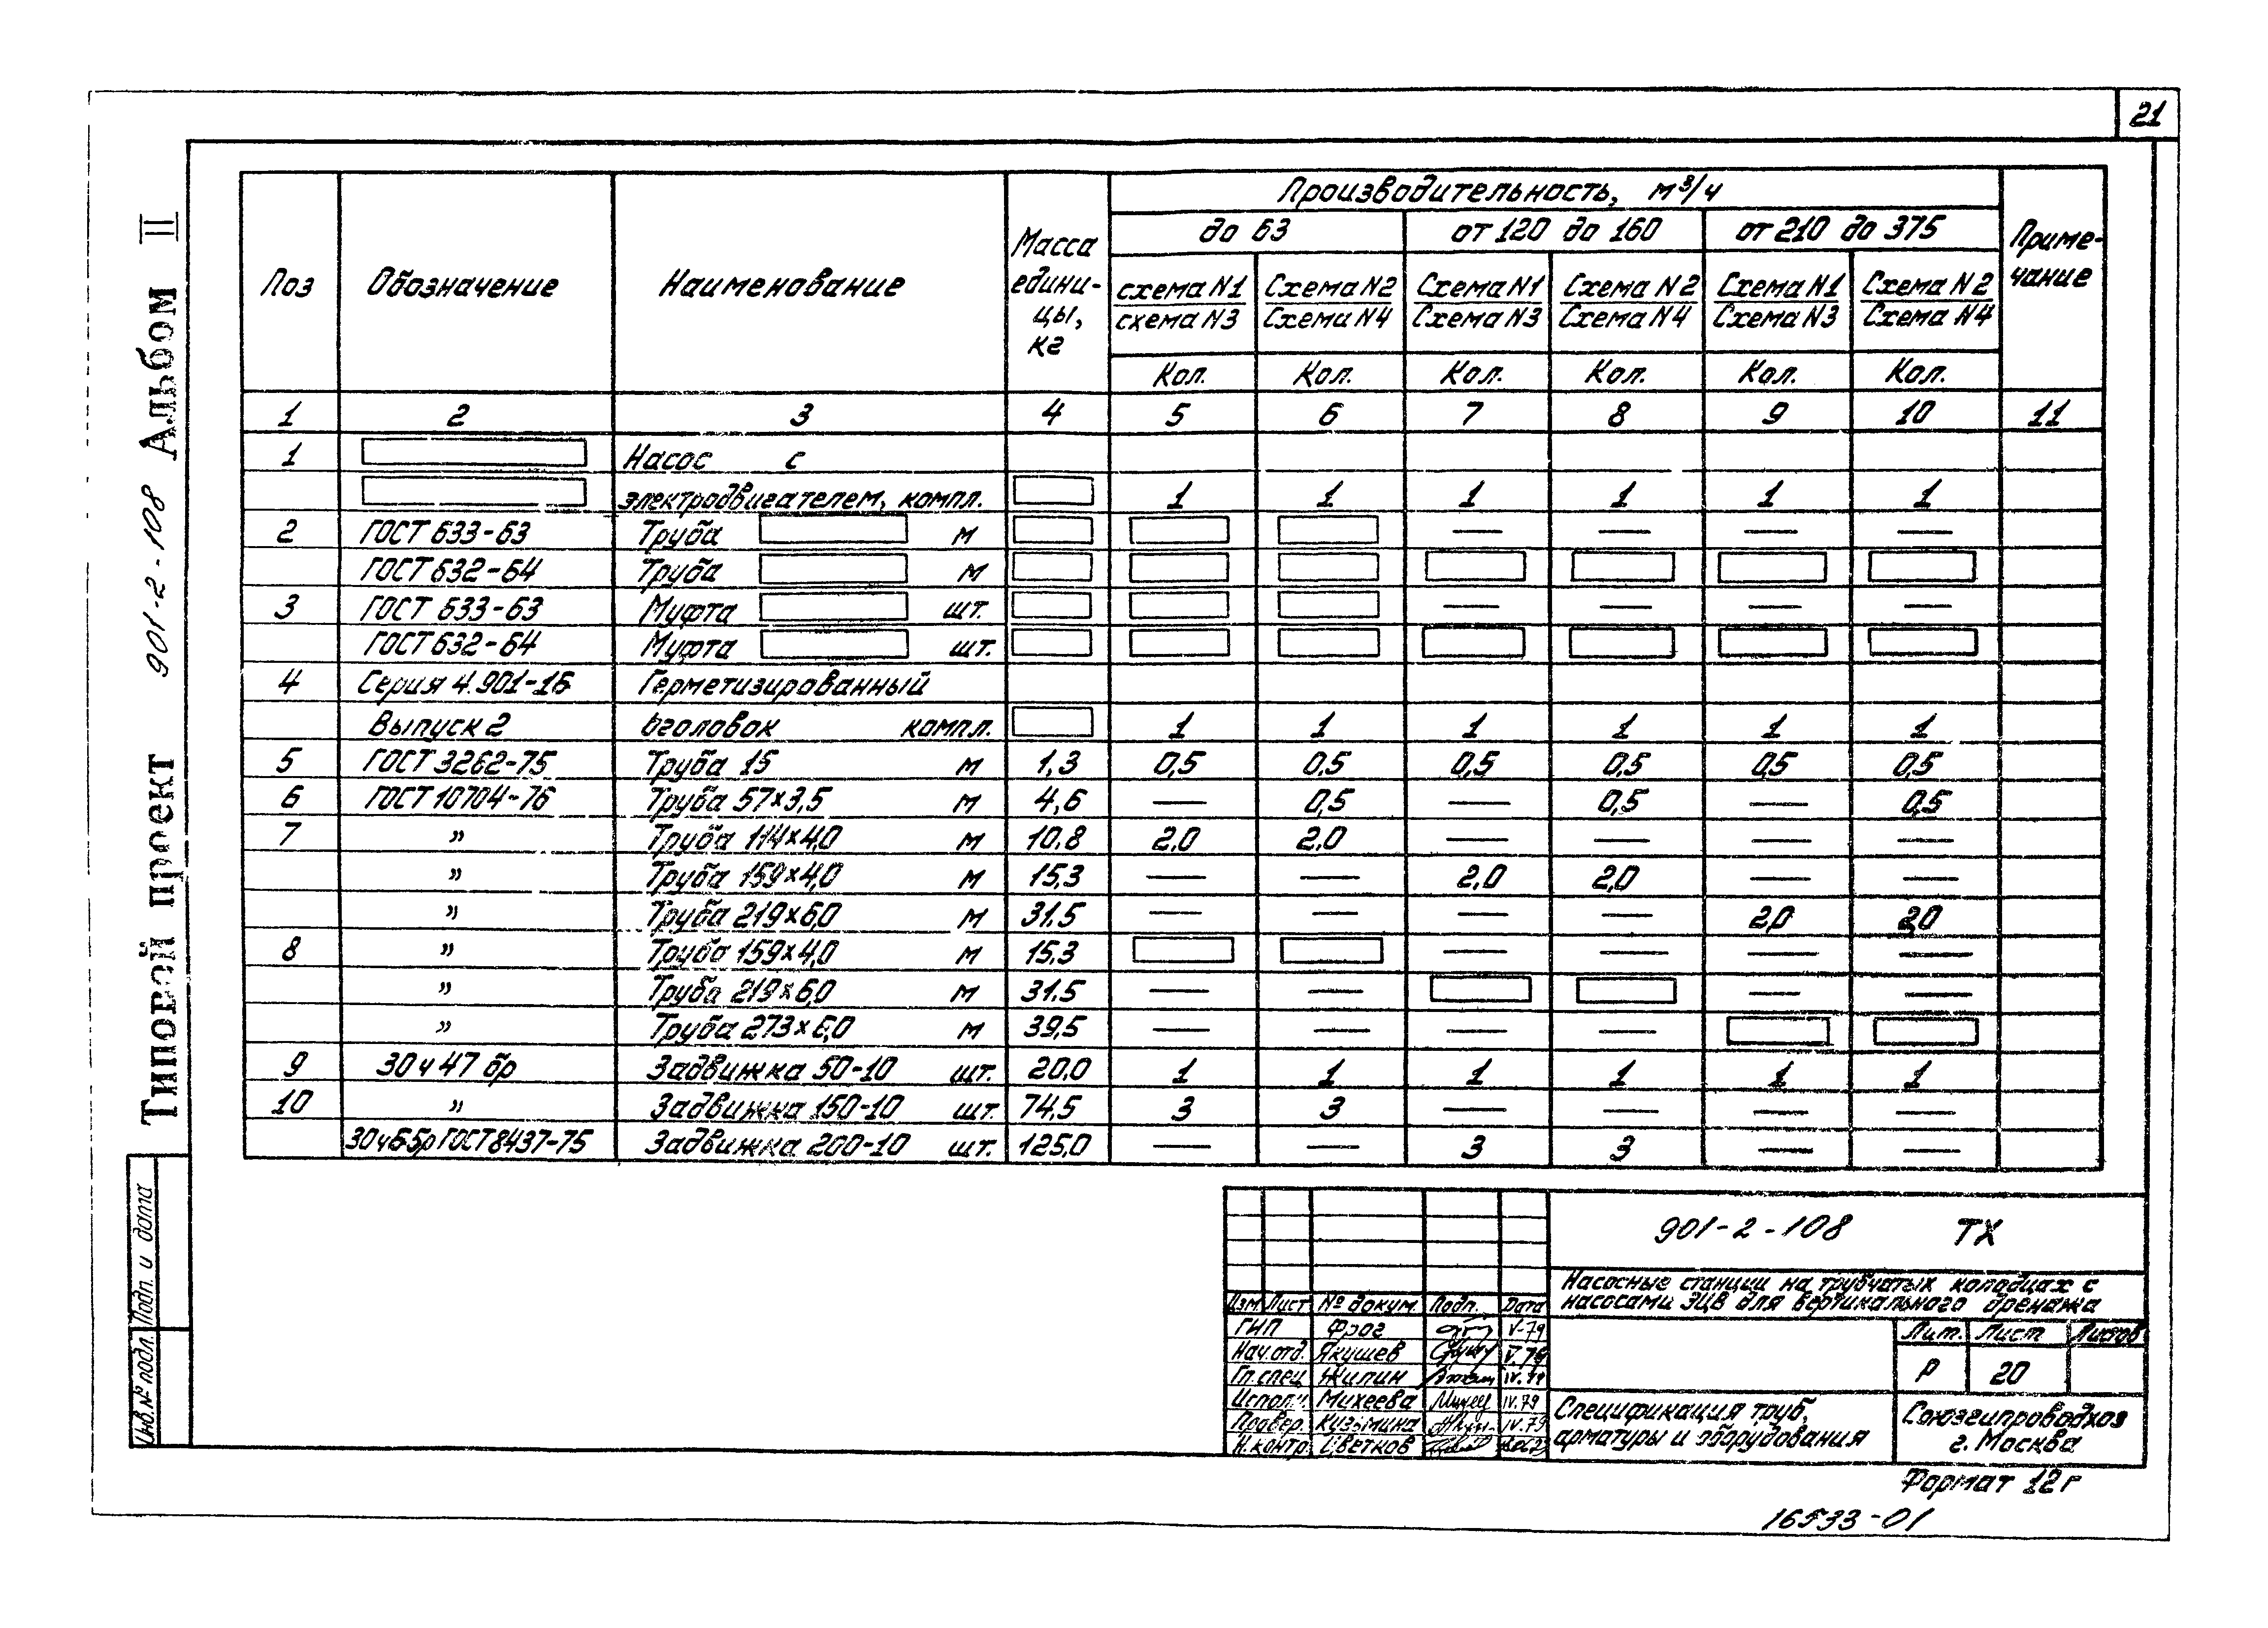 21
Типовой проект 901-2-108 Альбом II
Производительность, м³/ч
до 63 от 120 до 160 от 210 до 375
Поз Обозначение Наименование Масса едини-цы, кг Приме-чание
схема N1 Схема N2 Схема N1 Схема N2 Схема N1 Схема N2
схема N3 Схема N4 Схема N3 Схема N4 Схема N3 Схема N4
Кол. Кол. Кол. Кол. Кол. Кол.
1 2 3 4 5 6 7 8 9 10 11
1 Насос с
электродвигателем, компл. 1 1 1 1 1 1
2 ГОСТ 633-63 Труба м — — — —
ГОСТ 632-64 Труба м
3 ГОСТ 633-63 Муфта шт. — — — —
ГОСТ 632-64 Муфта шт.
4 Серия 4.901-16 Герметизированный
Выпуск 2 оголовок компл. 1 1 1 1 1 1
5 ГОСТ 3262-75 Труба 15 м 1,3 0,5 0,5 0,5 0,5 0,5 0,5
6 ГОСТ 10704-76 Труба 57×3,5 м 4,6 — 0,5 — 0,5 — 0,5
7 " Труба 114×4,0 м 10,8 2,0 2,0 — — — —
" Труба 159×4,0 м 15,3 — — 2,0 2,0 — —
" Труба 219×6,0 м 31,5 — — — — 2,0 2,0
8 " Труба 159×4,0 м 15,3 — — — —
" Труба 219×6,0 м 31,5 — — — —
" Труба 273×6,0 м 39,5 — — — —
9 30ч47бр Задвижка 50-10 шт. 20,0 1 1 1 1 1 1
10 " Задвижка 150-10 шт. 74,5 3 3 — — — —
30ч6бр ГОСТ 8437-75 Задвижка 200-10 шт. 125,0 — — 3 3 — —
901-2-108 ТХ
Насосные станции на трубчатых колодцах с
насосами ЭЦВ для вертикального дренажа
Изм. Лист № докум. Подп. Дата
ГИП Фрог V-79
Нач.отд. Якушев V.79
Гл.спец Жилин IV.79
Исполн. Михеева IV.79
Провер. Кузьмина IV.79
Н.контр. Цветков
Лит. Лист Листов
Р 20
Спецификация труб,
арматуры и оборудования
Союзгипроводхоз
г. Москва
Формат 12г
16533-01
Подп. и дата
Инв.№ подл.